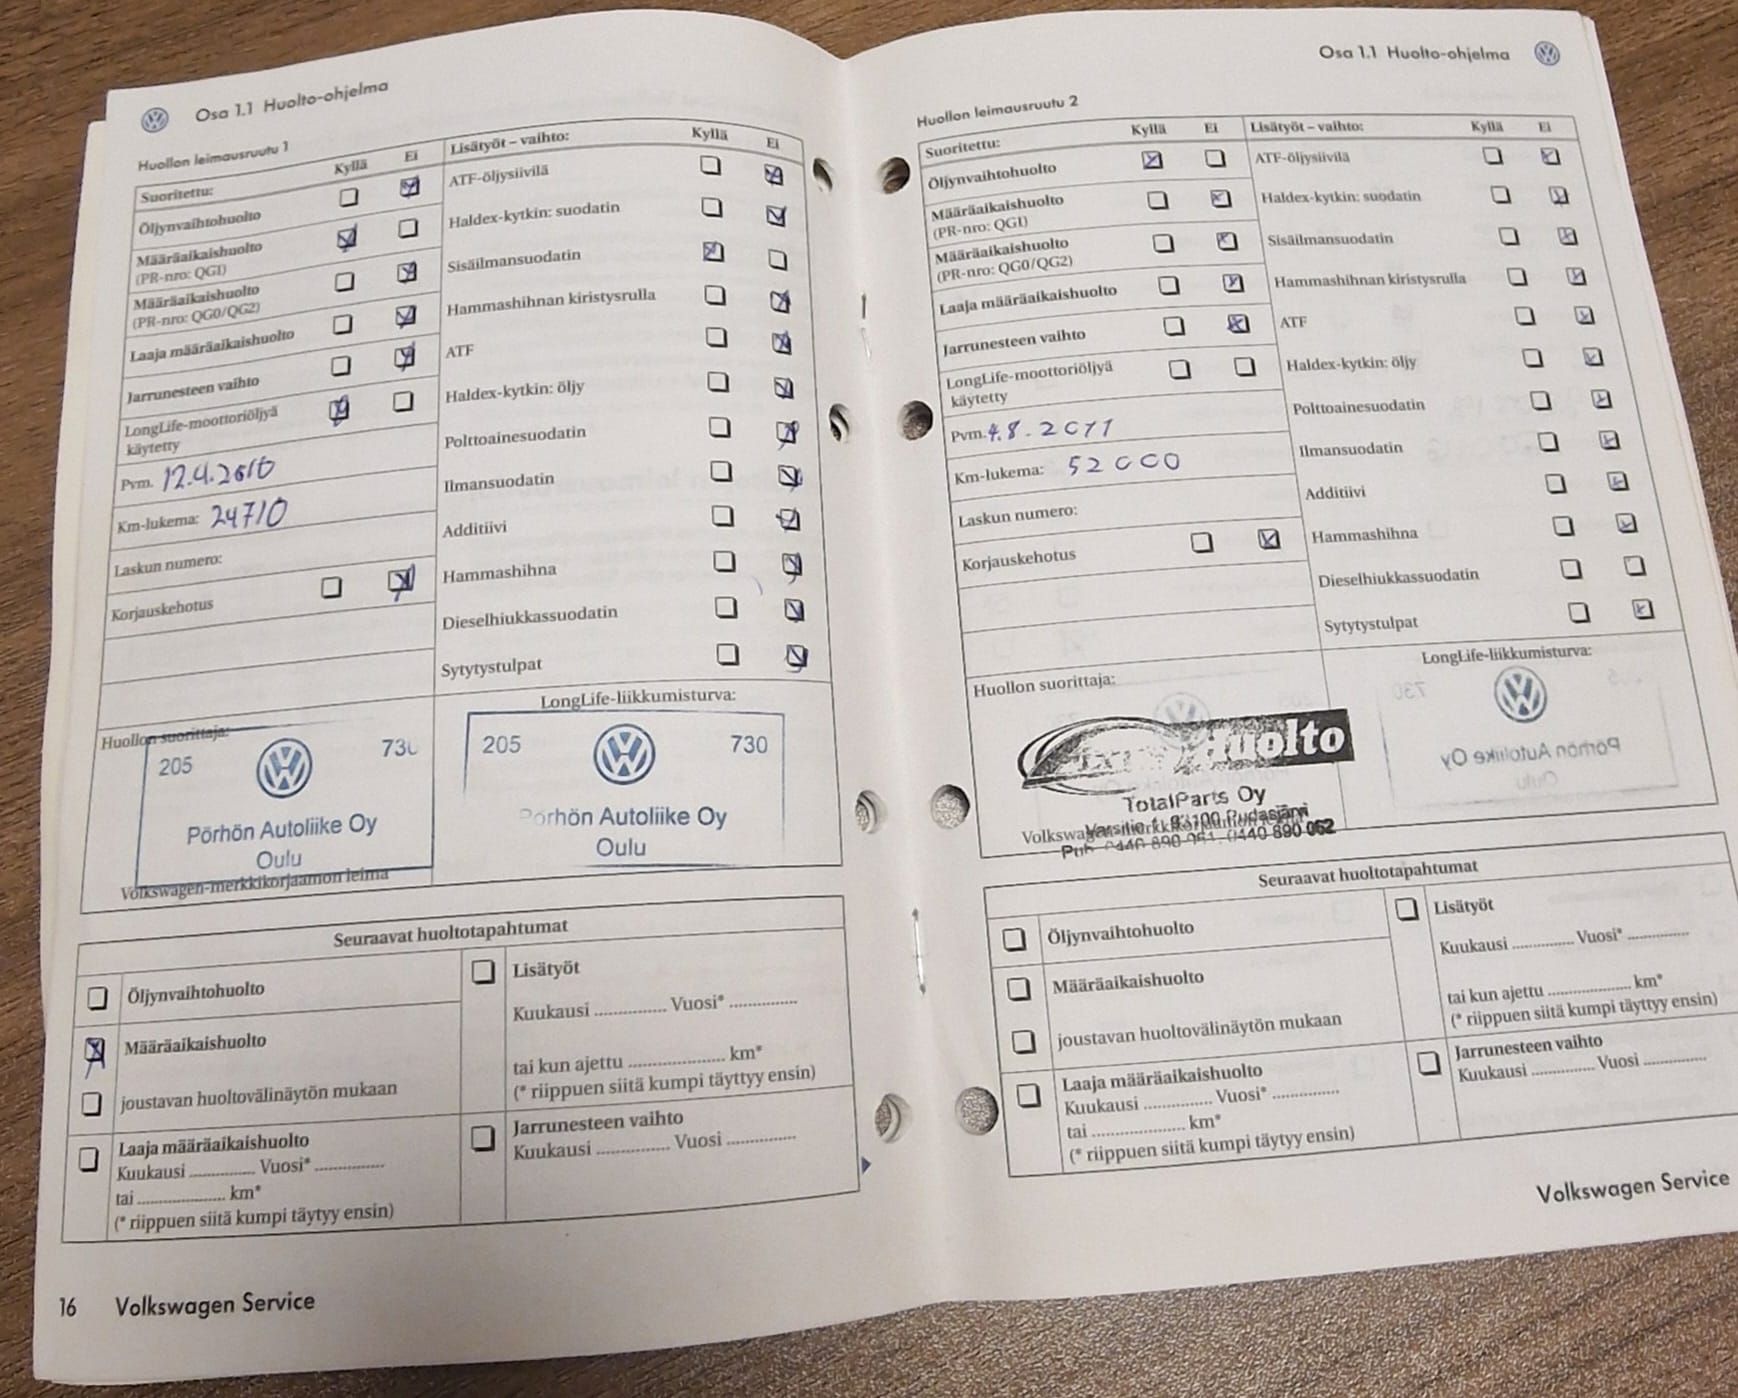 Osa 1.1 Huolto-ohjelma
Huollon leimausruutu 1
Suoritettu: Kyllä Ei
Öljynvaihtohuolto
Määräaikaishuolto
(PR-nro: QGI)
Määräaikaishuolto
(PR-nro: QG0/QG2)
Laaja määräaikaishuolto
Jarrunesteen vaihto
LongLife-moottoriöljyä
käytetty
Pvm. 12.4.2010
Km-lukema: 24710
Laskun numero:
Korjauskehotus
Lisätyöt – vaihto: Kyllä Ei
ATF-öljysiivilä
Haldex-kytkin: suodatin
Sisäilmansuodatin
Hammashihnan kiristysrulla
ATF
Haldex-kytkin: öljy
Polttoainesuodatin
Ilmansuodatin
Additiivi
Hammashihna
Dieselhiukkassuodatin
Sytytystulpat
Huollon suorittaja:
205
Pörhön Autoliike Oy
Oulu
Volkswagen-merkkikorjaamon leima
LongLife-liikkumisturva:
205 730
Pörhön Autoliike Oy
Oulu
Seuraavat huoltotapahtumat
Öljynvaihtohuolto
Määräaikaishuolto
joustavan huoltovälinäytön mukaan
Laaja määräaikaishuolto
Kuukausi ............. Vuosi* .............
tai ................. km*
(* riippuen siitä kumpi täytyy ensin)
Lisätyöt
Kuukausi ............. Vuosi* .............
tai kun ajettu ................. km*
(* riippuen siitä kumpi täyttyy ensin)
Jarrunesteen vaihto
Kuukausi ............. Vuosi .............
16 Volkswagen Service
Osa 1.1 Huolto-ohjelma
Huollon leimausruutu 2
Suoritettu: Kyllä Ei
Öljynvaihtohuolto
Määräaikaishuolto
(PR-nro: QGI)
Määräaikaishuolto
(PR-nro: QG0/QG2)
Laaja määräaikaishuolto
Jarrunesteen vaihto
LongLife-moottoriöljyä
käytetty
Pvm. 4.8.2011
Km-lukema: 52000
Laskun numero:
Korjauskehotus
Lisätyöt – vaihto: Kyllä Ei
ATF-öljysiivilä
Haldex-kytkin: suodatin
Sisäilmansuodatin
Hammashihnan kiristysrulla
ATF
Haldex-kytkin: öljy
Polttoainesuodatin
Ilmansuodatin
Additiivi
Hammashihna
Dieselhiukkassuodatin
Sytytystulpat
Huollon suorittaja:
Huolto
TotalParts Oy
93100 Pudasjärvi
0440 890 062
LongLife-liikkumisturva:
Seuraavat huoltotapahtumat
Öljynvaihtohuolto
Määräaikaishuolto
joustavan huoltovälinäytön mukaan
Laaja määräaikaishuolto
Kuukausi ............. Vuosi* .............
tai ................. km*
(* riippuen siitä kumpi täytyy ensin)
Lisätyöt
Kuukausi ............. Vuosi* .............
tai kun ajettu ................. km*
(* riippuen siitä kumpi täytyy ensin)
Jarrunesteen vaihto
Kuukausi ............. Vuosi .............
Volkswagen Service